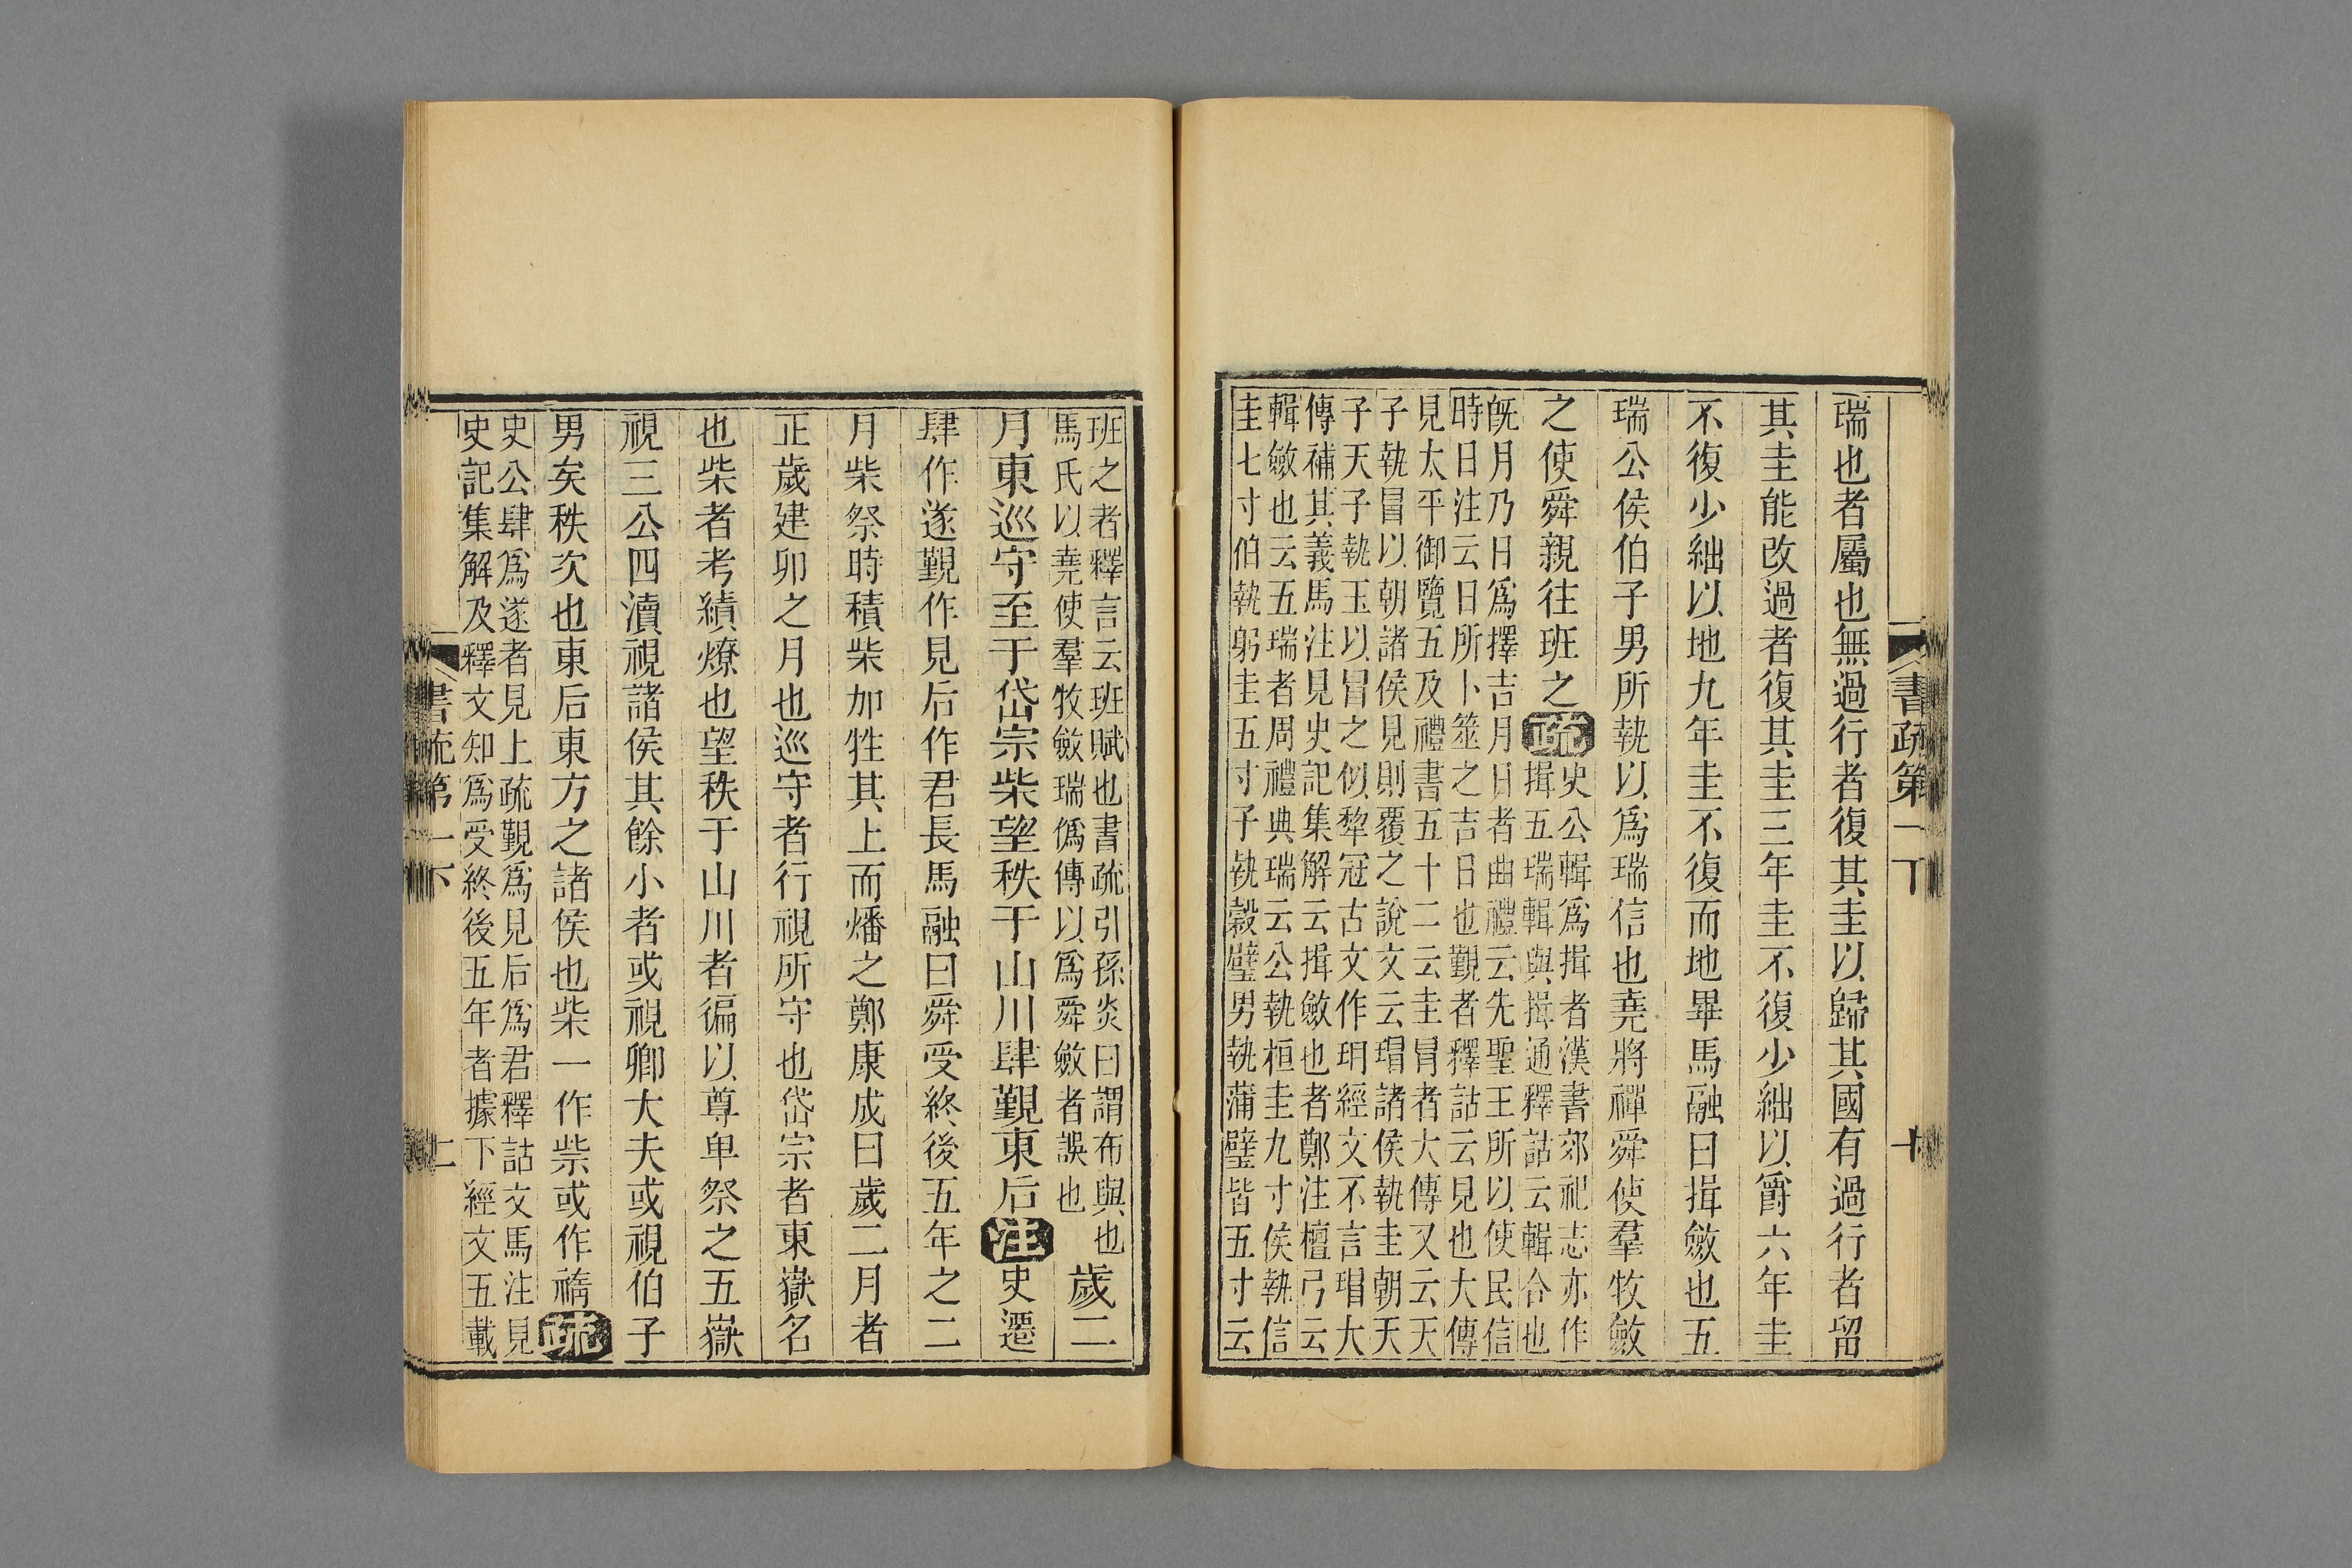 書疏第一下
十
瑞也者屬也無過行者復其圭以歸其國有過行者留
其圭能改過者復其圭三年圭不復少絀以爵六年圭
不復少絀以地九年圭不復而地畢馬融曰揖斂也五
瑞公侯伯子男所執以爲瑞信也堯將禪舜使羣牧斂
之使舜親往班之疏
史公輯爲揖者漢書郊祀志亦作
揖五瑞輯與揖通釋詁云輯合也
旣月乃日爲擇吉月日者曲禮云先聖王所以使民信
時日注云日所卜筮之吉日也覲者釋詁云見也大傳
見太平御覽五及禮書五十二云圭冒者大傳又云天
子執冒以朝諸侯見則覆之說文云瑁諸侯執圭朝天
子天子執玉以冒之似犂冠古文作玥經文不言瑁大
傳補其義馬注見史記集解云揖斂也者鄭注檀弓云
輯斂也云五瑞者周禮典瑞云公執桓圭九寸侯執信
圭七寸伯執躬圭五寸子執穀璧男執蒲璧皆五寸云
班之者釋言云班賦也書疏引孫炎曰謂布與也
馬氏以堯使羣牧斂瑞僞傳以爲舜斂者誤也
歲二
月東巡守至于岱宗柴望秩于山川肆覲東后注史遷
肆作遂覲作見后作君長馬融曰舜受終後五年之二
月柴祭時積柴加牲其上而燔之鄭康成曰歲二月者
正歲建卯之月也巡守者行視所守也岱宗者東嶽名
也柴者考績燎也望秩于山川者徧以尊卑祭之五嶽
視三公四瀆視諸侯其餘小者或視卿大夫或視伯子
男矣秩次也東后東方之諸侯也柴一作祡或作䄕疏
史公肆爲遂者見上疏覲爲見后爲君釋詁文馬注見
史記集解及釋文知爲受終後五年者據下經文五載
書疏第一下